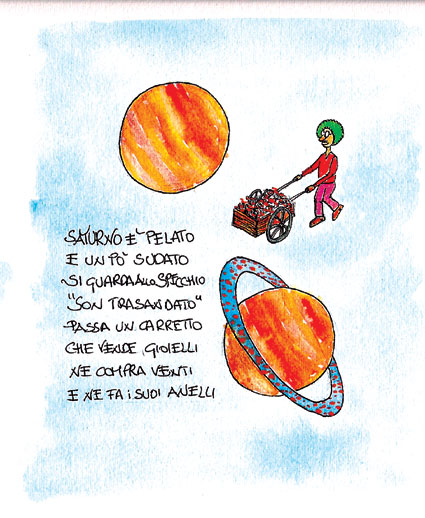 SATURNO E' PELATO
E UN PO' SUDATO
SI GUARDA ALLO SPECCHIO
"SON TRASANDATO"
PASSA UN CARRETTO
CHE VENDE GIOIELLI
NE COMPRA VENTI
E NE FA I SUOI ANELLI